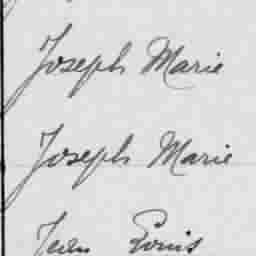 Joseph Marie
Joseph Marie
Jean Louis